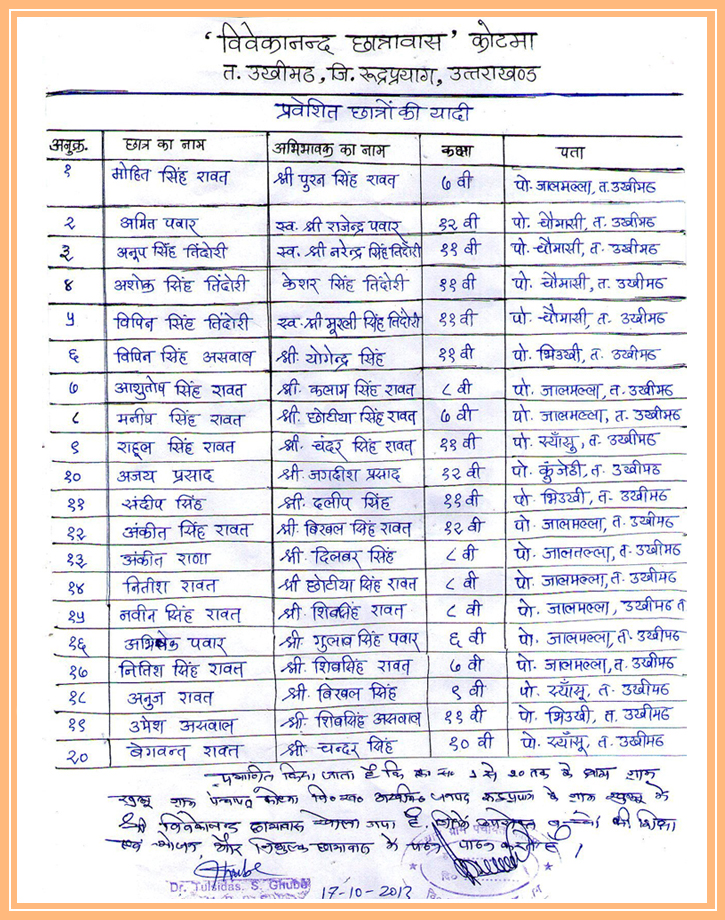 'विवेकानन्द छात्रावास' कोटमा
त. उखीमठ, जि. रूद्रप्रयाग, उत्तराखण्ड
प्रवेशित छात्रों की यादी
अनुक्र. छात्र का नाम अभिभावक का नाम कक्षा पता
१ मोहित सिंह रावत श्री पुरन सिंह रावत ७ वी पो. जालमल्ला, त. उखीमठ
२ अमित पवार स्व. श्री राजेन्द्र पवार १२ वी पो. चौमासी, त. उखीमठ
३ अनूप सिंह तिंदोरी स्व. श्री नरेन्द्र सिंह तिंदोरी ११ वी पो. चौमासी, त. उखीमठ
४ अशोक सिंह तिंदोरी केशर सिंह तिंदोरी ११ वी पो. चौमासी, त. उखीमठ
५ विपिन सिंह तिंदोरी स्व. श्री मुरली सिंह तिंदोरी ११ वी पो. चौमासी, त. उखीमठ
६ विपिन सिंह असवाल श्री. योगेन्द्र सिंह ११ वी पो. भिउखी, त. उखीमठ
७ आशुतोष सिंह रावत श्री. कलाम सिंह रावत ८ वी पो. जालमल्ला, त. उखीमठ
८ मनीष सिंह रावत श्री. छोटीया सिंह रावत ७ वी पो. जालमल्ला, त. उखीमठ
९ राहूल सिंह रावत श्री. चंदर सिंह रावत ११ वी पो. स्याँसु, त. उखीमठ
१० अजय प्रसाद श्री. जगदीश प्रसाद १२ वी पो. कुंजेठी, त. उखीमठ
११ संदीप सिंह श्री. दलीप सिंह ११ वी पो. भिउखी, त. उखीमठ
१२ अंकीत सिंह रावत श्री. बिखल सिंह रावत १२ वी पो. जालमल्ला, त. उखीमठ
१३ अंकीत राणा श्री. दिलबर सिंह ८ वी पो. जालतल्ला, त. उखीमठ
१४ नितीश रावत श्री छोटीया सिंह रावत ८ वी पो. जालमल्ला, त. उखीमठ
१५ नवीन सिंह रावत श्री. शिवसिंह रावत ८ वी पो. जालमल्ला, उखीमठ त
१६ अभिषेक पवार श्री. गुलाब सिंह पवार ६ वी पो. जालमल्ला, त. उखीमठ
१७ नितिश सिंह रावत श्री. शिवसिंह रावत ७ वी पो. जालमल्ला, त. उखीमठ
१८ अनुज रावत श्री. बिखल सिंह ९ वी पो. स्याँसू, त. उखीमठ
१९ उमेश असवाल श्री. शिवसिंह असवाल ११ वी पो. भिउखी, त. उखीमठ
२० बेगवन्त रावत श्री. चन्दर सिंह १० वी पो. स्याँसू, त. उखीमठ
प्रमाणित किया जाता है कि १ से २० तक के
के
श्री विवेकानन्द छात्रावास की शिक्षा
एवं भोजन, और निशुल्क छात्रावास के है।
Ghube
Dr. Tulsidas. S. Ghube
17-10-2013